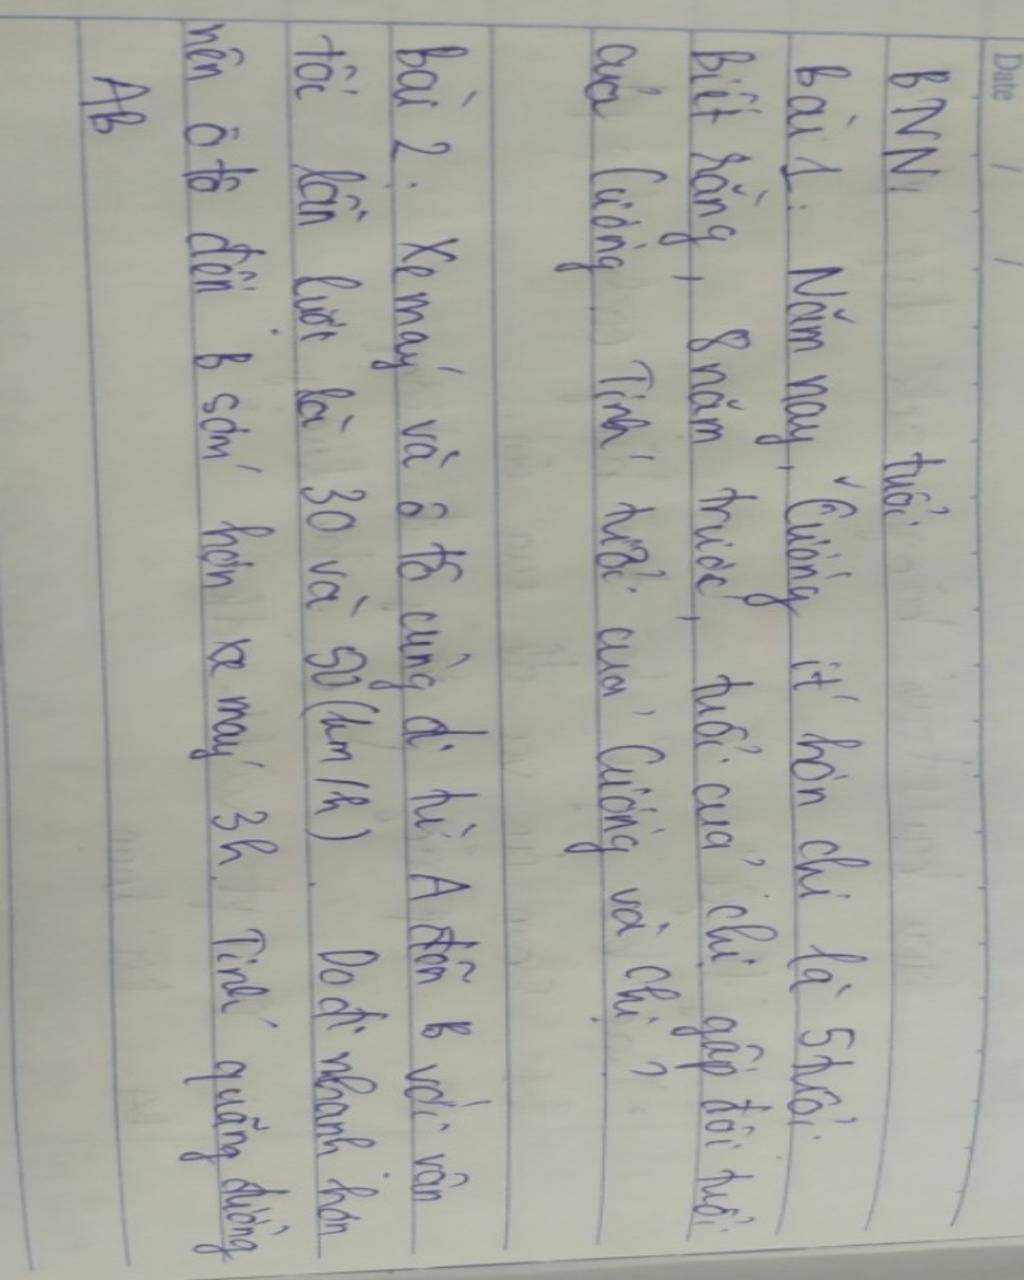 Date / /
BNN
tuổi
Bài 1: Năm nay, Cường ít hơn chị là 5 tuổi.
Biết rằng, 8 năm trước, tuổi của chị gấp đôi tuổi
của Cường. Tính tuổi của Cường và chị?
Bài 2. Xe máy và ô tô cùng đi từ A đến B với vận
tốc lần lượt là 30 và 50 (km/h). Do đi nhanh hơn
nên ô tô đến B sớm hơn xe máy 3h. Tính quãng đường
AB